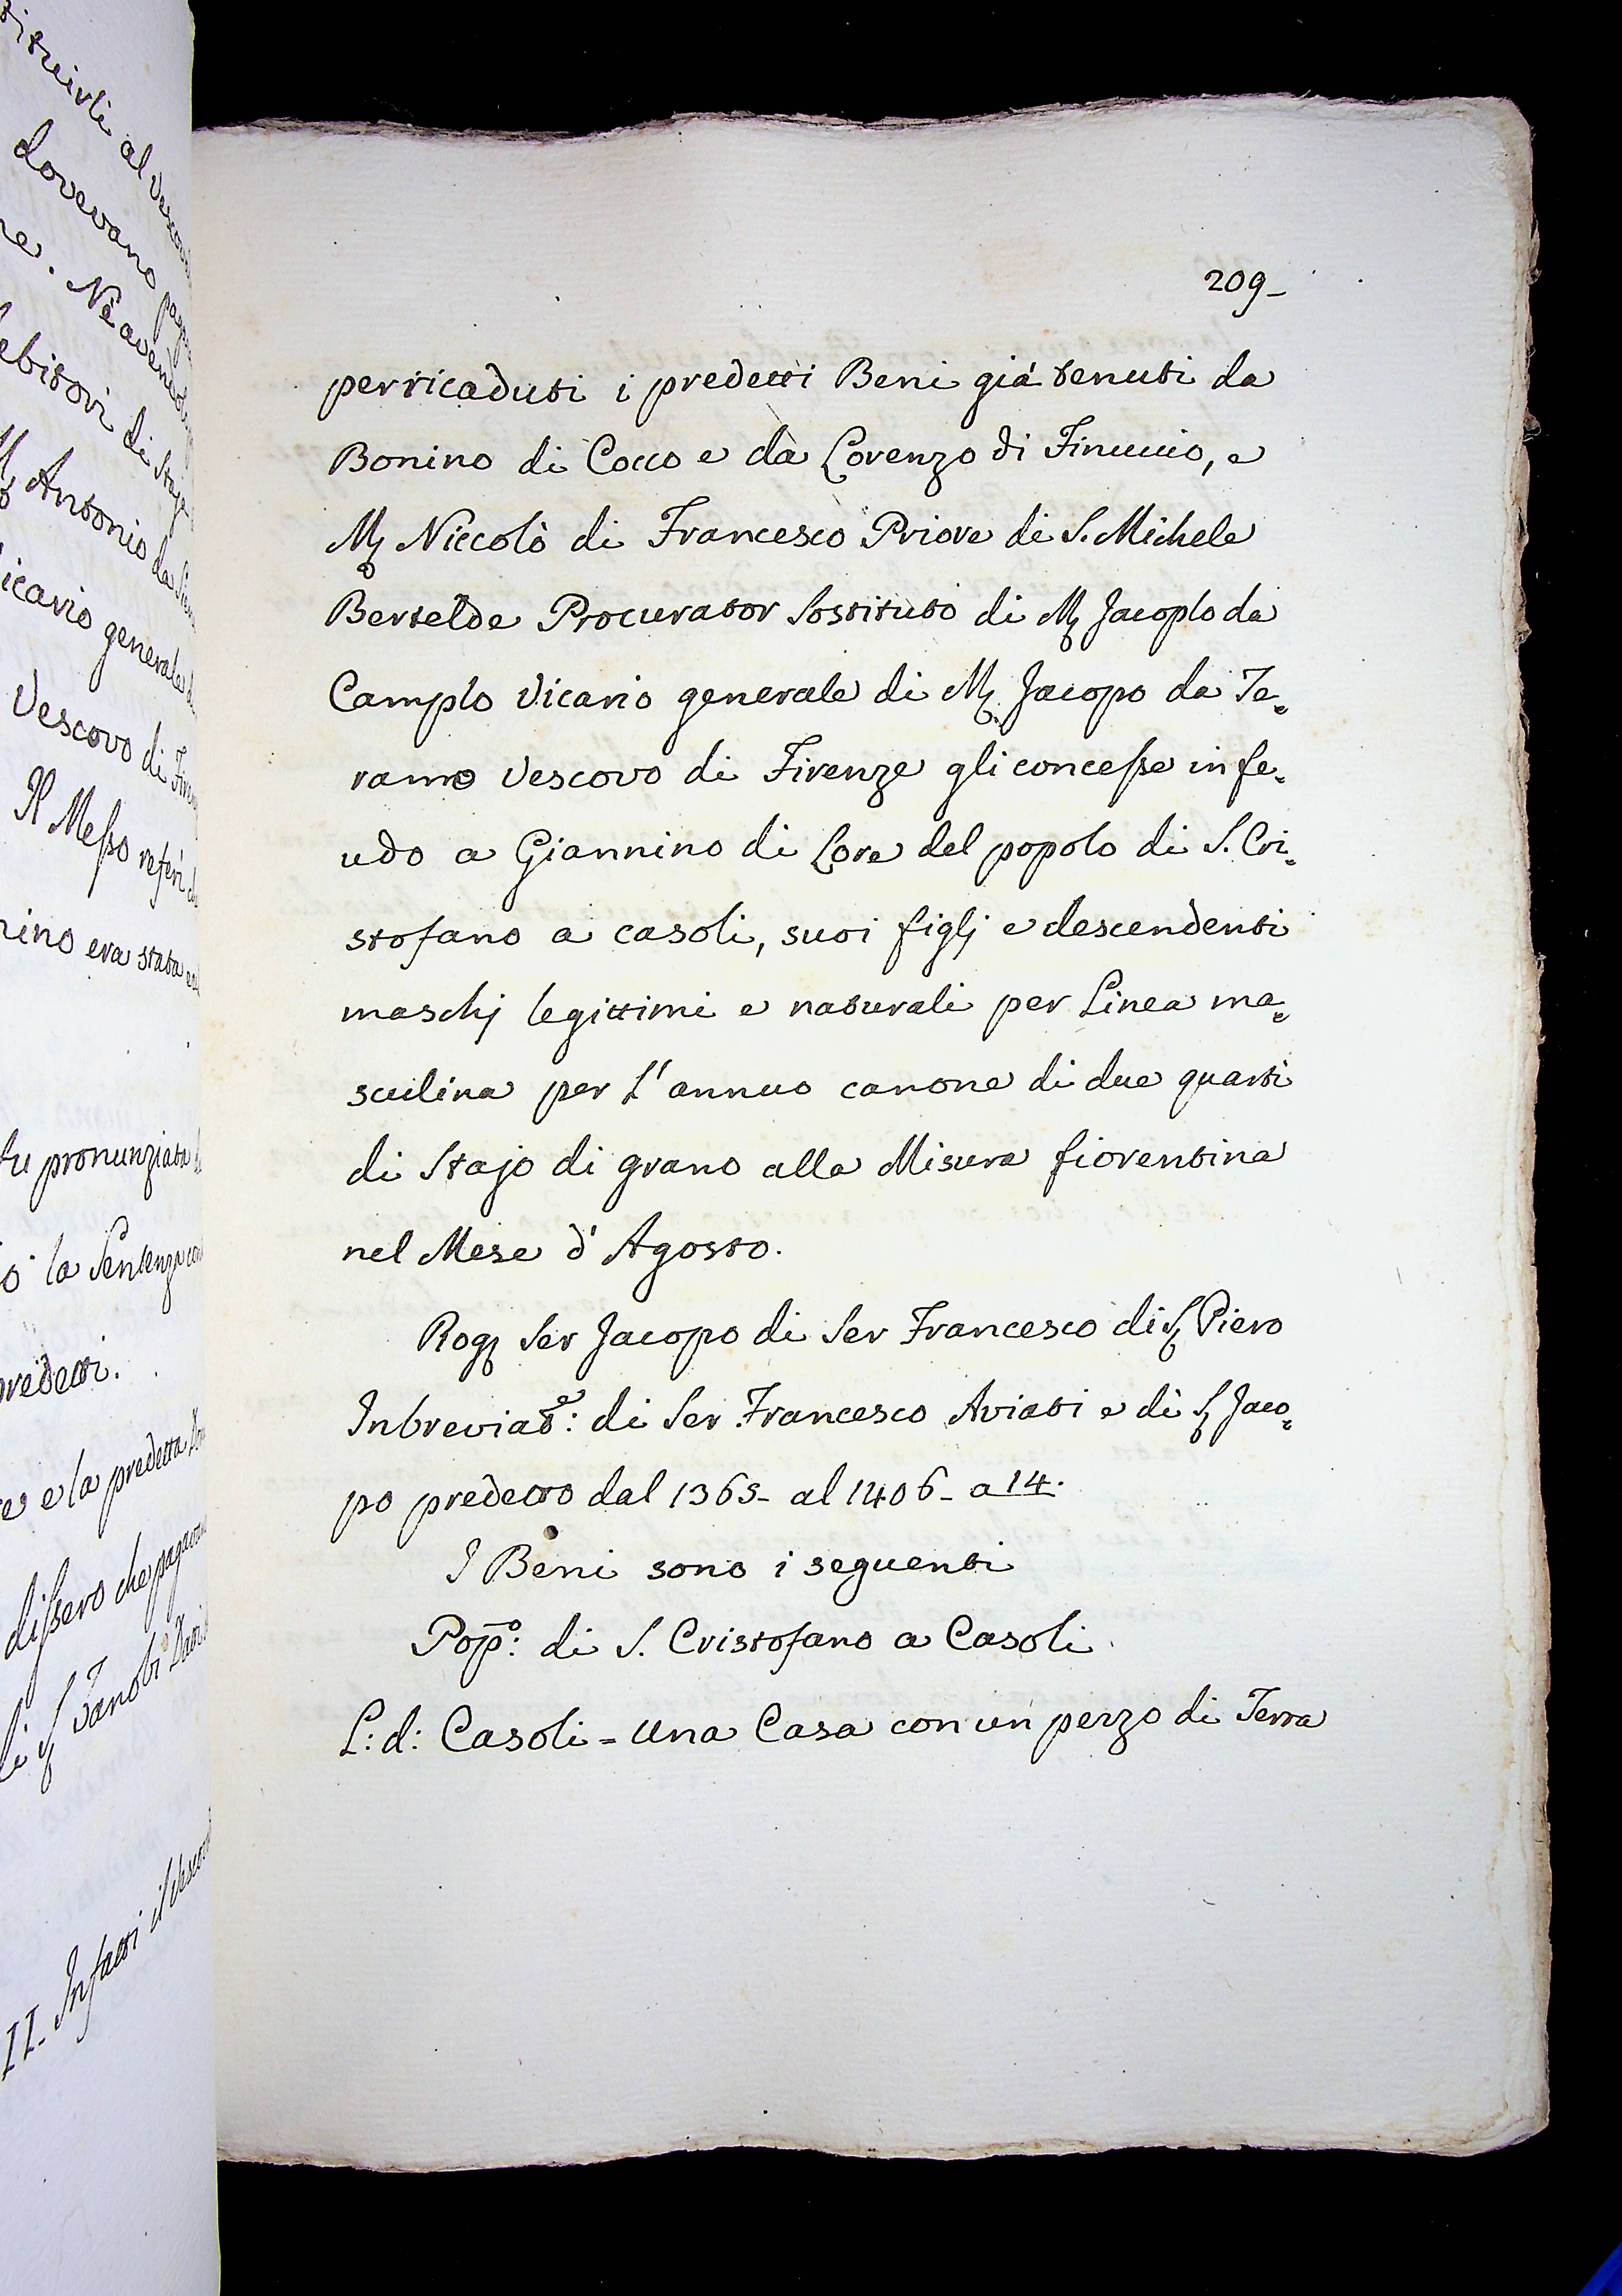 209_
per ricaduti i predetti Beni già tenuti da
Bonino di Cocco e da Lorenzo di Finuccio, e
M Niccolò di Francesco Priore di S. Michele
Bertelde Procurator Sostituto di M Jacoplo da
Camplo Vicario generale di M Jacopo da Te=
ramo Vescovo di Firenze gli concesse in fe=
udo a Giannino di Lore del popolo di S. Cri=
stofano a casoli, suoi figlj e descendenti
maschj legittimi e naturali per Linea ma=
sculina per l'annuo canone di due quarti
di Stajo di grano alla Misura fiorentina
nel Mese d'Agosto.
Rog Ser Jacopo di Ser Francesco di S Piero
Inbreviat.e: di Ser Francesco Aviati e di S Jaco=
po predetto dal 1363_ al 1406_ a 14.
I Beni sono i seguenti
Pop.o: di S. Cristofano a Casoli
L: d: Casoli = Una Casa con un pezzo di Terra
al
dovevano
Ne avend
debitori di
Antonio da
Vicario generale
Vescovo di
Il Messo referì
era stata
fu pronunziata
la Sentenza
predetti.
e la predetta
dissero che
Zanobi
II. Infatti il